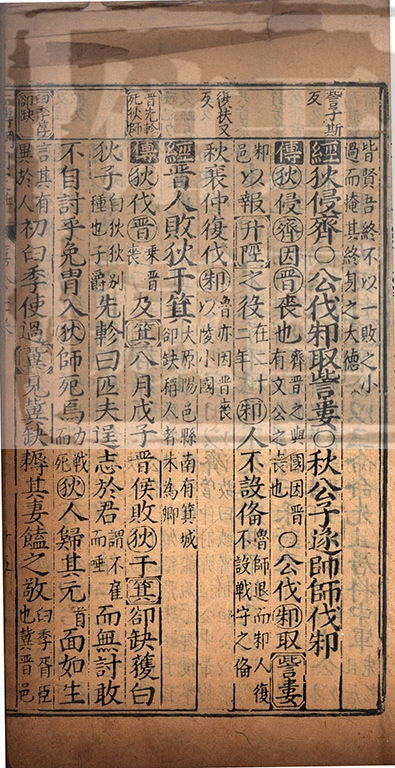 訾子斯反
皆賢吾終不以一敗之小過而掩其終身之大德
經狄侵齊〇公伐邾取訾婁〇秋公子遂帥師伐邾
傳狄侵齊因晉喪也齊晉之與國因晉有文公之喪也〇公伐邾取訾婁
邾邑以報升陘之役在二十二年邾人不設備魯師退而邾人復不設戰守之備
復扶又反
秋襄仲復伐邾魯亦因晉喪以陵小國
經晉人敗狄于箕大原陽邑縣南有箕城郤缺稱人者未為卿
晉先軫死狄師
傳狄伐晉乘晉喪及箕八月戊子晉侯敗狄于箕郤缺獲白
狄子白狄狄別種也子爵先軫曰匹夫逞志於君謂不顧而唾而無討敢
不自討乎免冑入狄師死焉力戰而死狄人歸其元首面如生
臼季薦郤缺
言其有異於人初臼季使過冀見冀缺耨其妻饁之敬臼季胥臣也冀晉邑